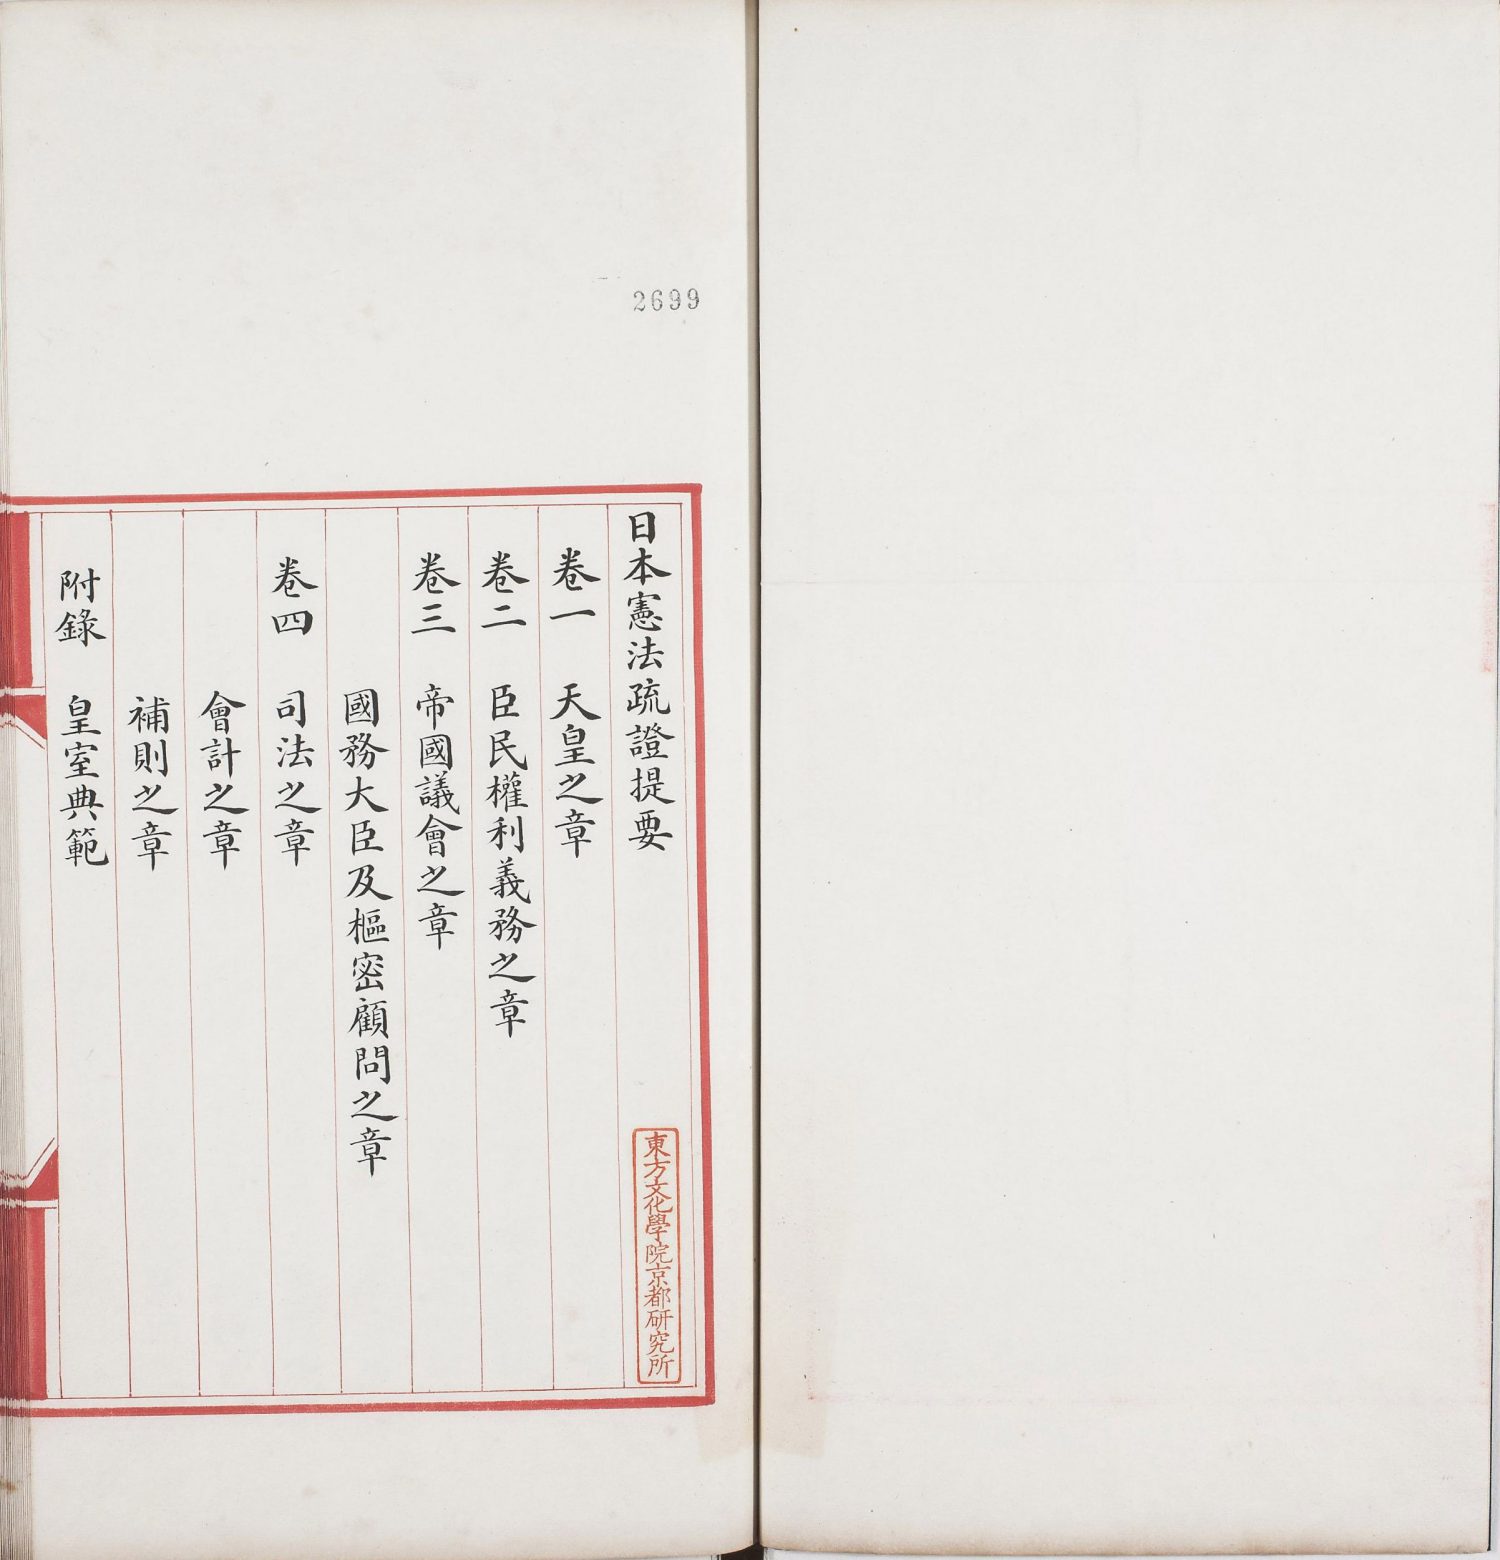 2699
日本憲法疏證提要
卷一 天皇之章
卷二 臣民權利義務之章
卷三 帝國議會之章
國務大臣及樞密顧問之章
卷四 司法之章
會計之章
補則之章
附錄 皇室典範
東方文化學院京都研究所